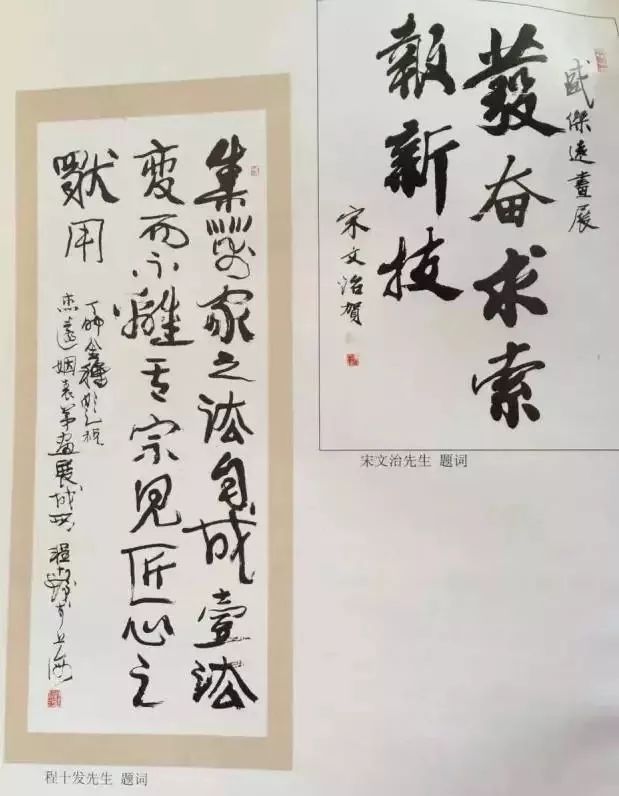 盛傑遠畫展
發奋求索
報新技
宋文治賀
宋文治先生 题词
集家之法自成壹法
變而不離其宗見匠心之
用
丁卯
杰遠姻表弟畫展成 程十髮于上海
程十发先生 题词